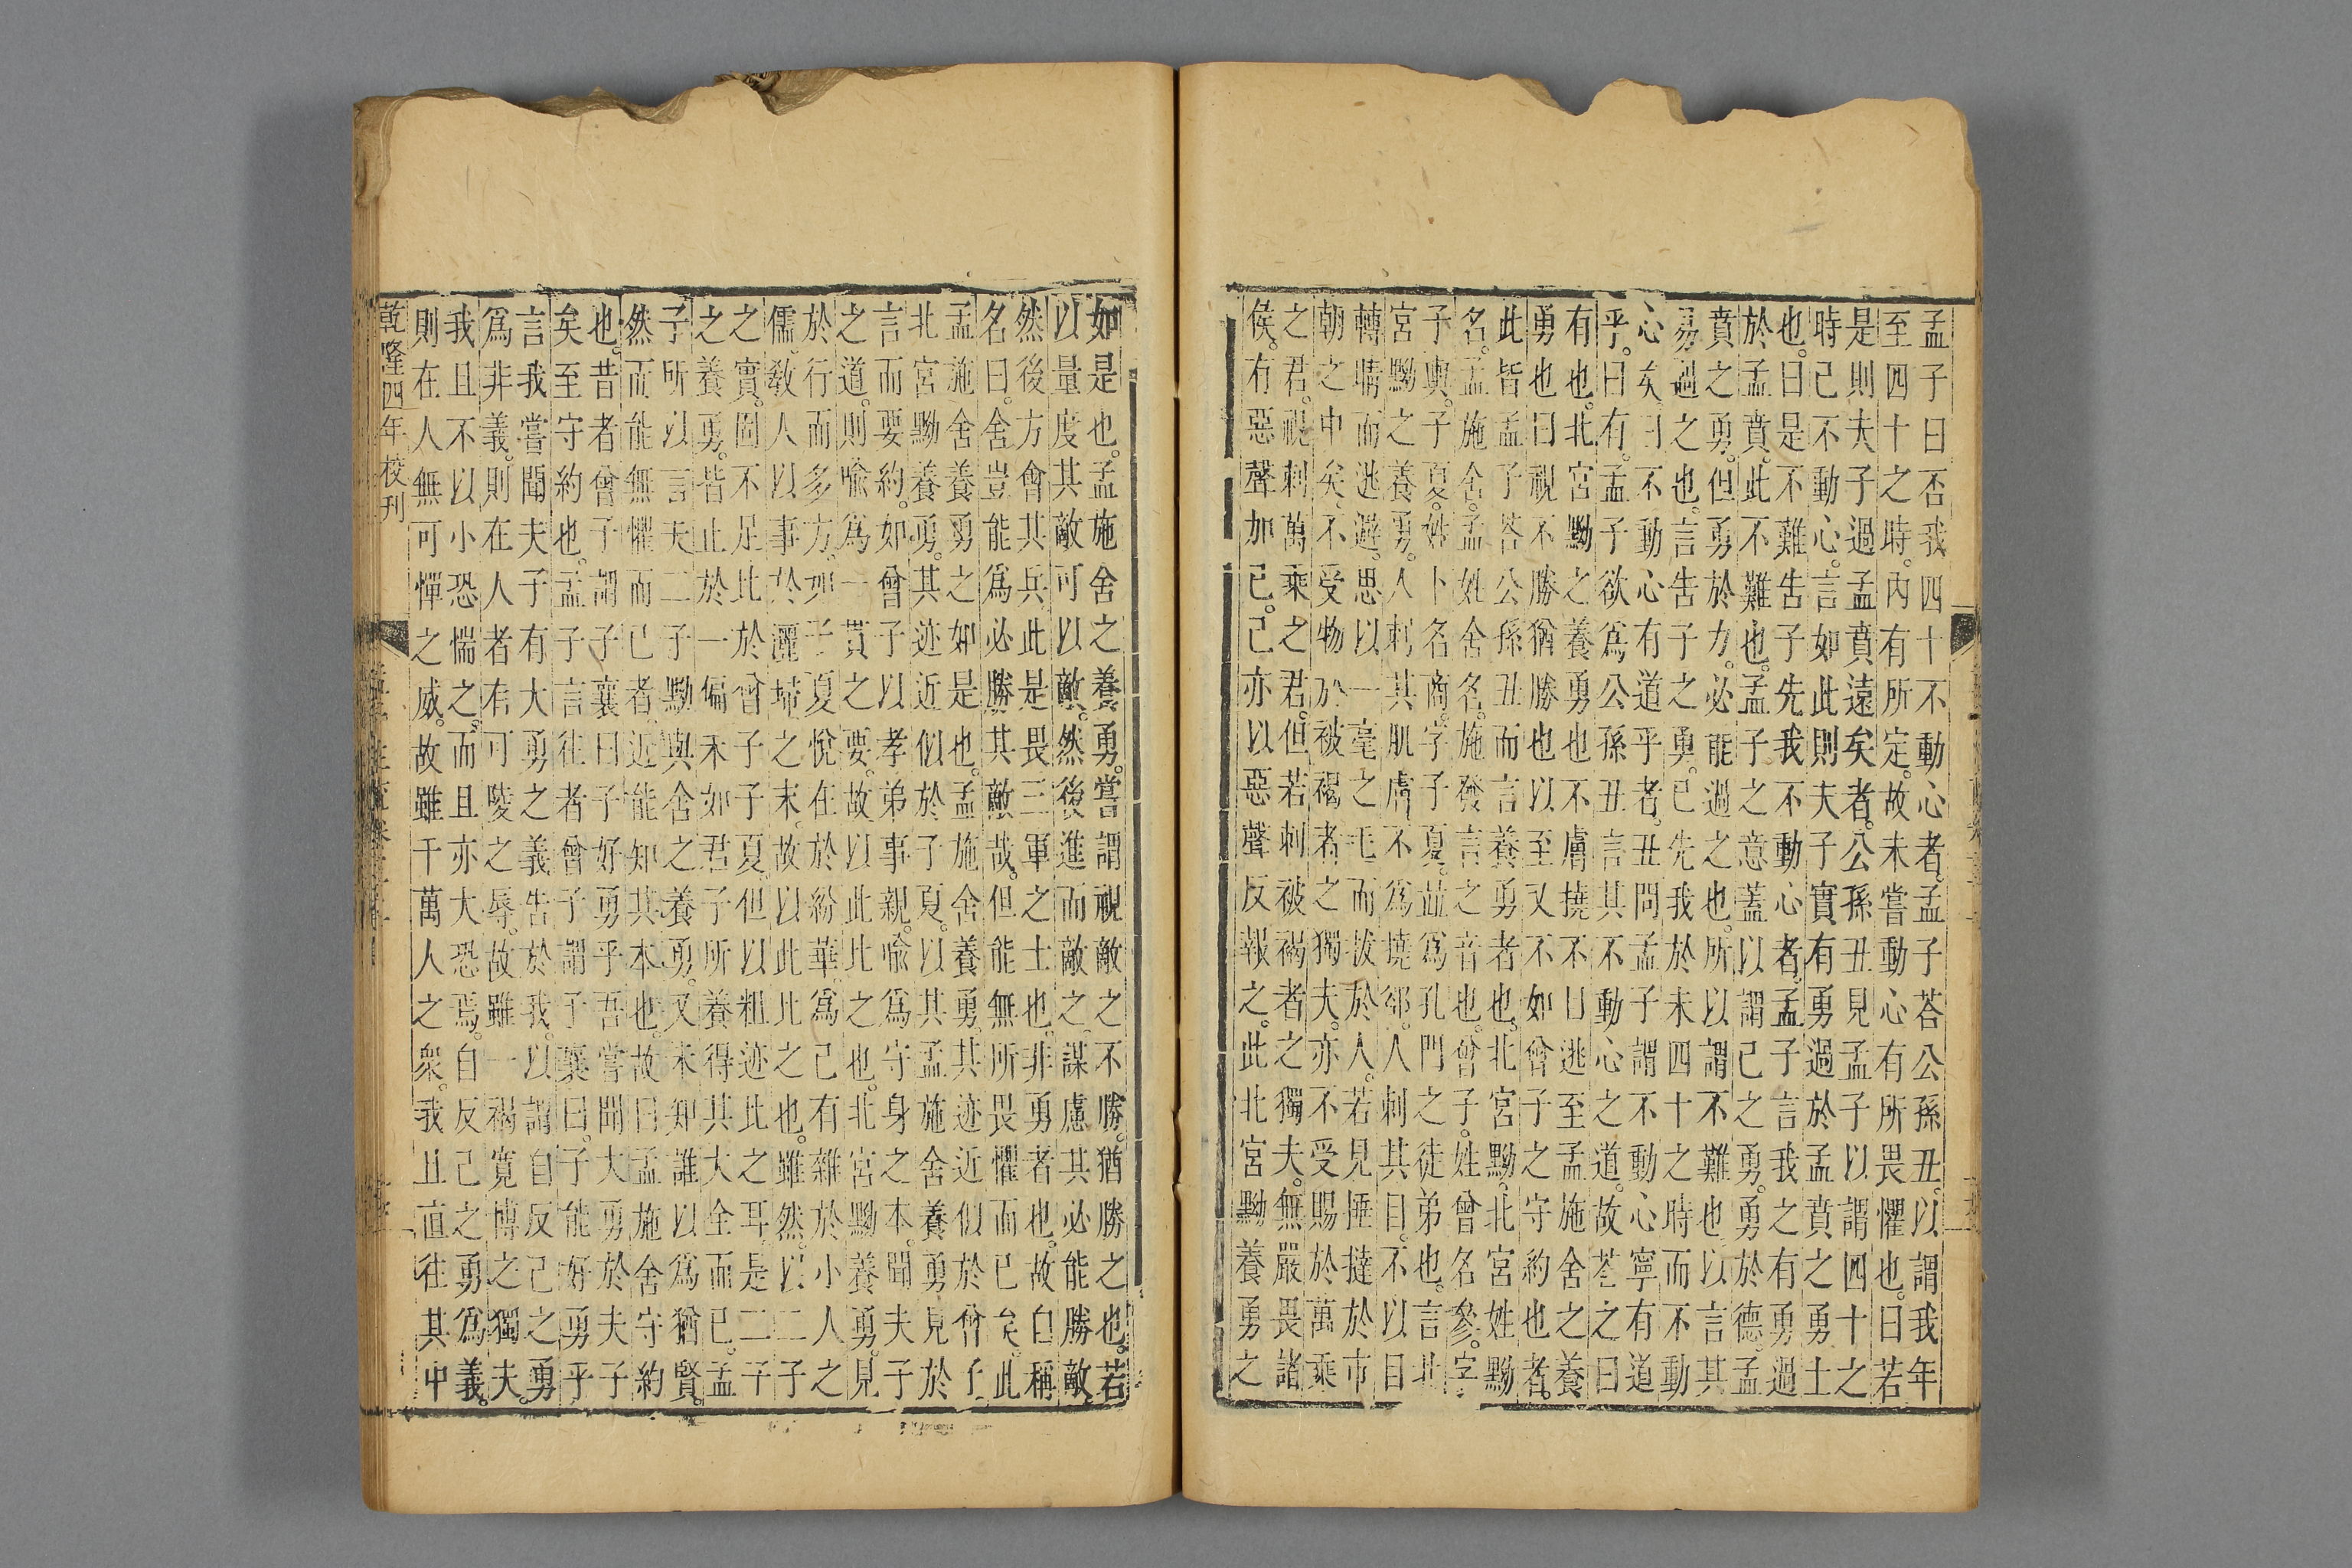 孟子曰否我四十不動心者。孟子荅公孫丑。以謂我年
至四十之時。內有所定。故未嘗動心有所畏懼也。曰若
是則夫子過孟賁遠矣者。公孫丑見孟子以謂四十之
時己不動心。言如此則夫子實有勇過於孟賁之勇士
也。曰是不難告子先我不動心者。孟子言我之有勇過
於孟賁。此不難也。孟子之意蓋以謂己之勇。勇於德。孟
賁之勇。但勇於力。必能過之也。所以謂不難也以言其
易過之也。言告子之勇。已先我於未四十之時而不動
心矣曰不動心有道乎者。丑問孟子謂不動心寧有道
乎。曰有。孟子欲爲公孫丑言其不動心之道。故荅之曰
有也。北宮黝之養勇也不膚撓不目逃至孟施舍之養
勇也曰視不勝猶勝也以至又不如曾子之守約也者。
此皆孟子荅公孫丑而言養勇者也。北宮黝。北宮姓黝
名。孟施舍。孟姓舍名。施發言之音也。曾子。姓曾名參。字
子輿。子夏。姓卜名商。字子夏。並爲孔門之徒弟也。言北
宮黝之養勇。人刺其肌膚不爲撓郤。人刺其目。不以目
轉睛而逃避。思以一毫之毛而拔於人。若見捶撻於市
朝之中矣。不受物於被褐者之獨夫。亦不受賜於萬乘
之君。視刺萬乘之君。但若刺被褐者之獨夫。無嚴畏諸
侯。有惡聲加己。己亦以惡聲反報之。此北宮黝養勇之
如是也。孟施舍之養勇。嘗謂視敵之不勝。猶勝之也。若
以量度其敵可以敵。然後進而敵之。謀慮其必能勝敵。
然後方會其兵。此是畏三軍之士也。非勇者也。故自稱
名曰。舍豈能爲必勝其敵哉。但能無所畏懼而已矣。此
孟施舍養勇之如是也。孟施舍養勇。其迹近似於曾子
北宮黝養勇。其迹近似於子夏。以其孟施舍養勇見於
言而要約。如曾子以孝弟事親。喻爲守身之本。聞夫子
之道。則喻爲一貫之要。故以此比之也。北宮黝養勇。見
於行而多方。如子夏悅在於紛華爲己有雜於小人之
儒。敎人以事於灑埽之末。故以此比之也。雖然。以二子
之實。固不足比於曾子子夏。但以粗迹比之耳。是二子
之養勇。皆止於一偏未如君子所養得其大全而已孟
子所以言夫二子黝與舍之養勇。又未知誰以爲猶賢。
然而能無懼而已者近能知其本也。故曰孟施舍守約
也。昔者曾子謂子襄曰子好勇乎吾嘗聞大勇於夫子
矣至守約也。孟子言往者曾子謂子襄曰。子能好勇乎
言我嘗聞夫子有大勇之義告於我。以謂自反己之勇
爲非義。則在人者有可陵之辱。故雖一褐寬博之獨夫
我且不以小恐惴之。而且亦大恐焉。自反己之勇爲義。
則在人無可憚之威。故雖千萬人之衆。我且直往其中
乾隆四年校刊